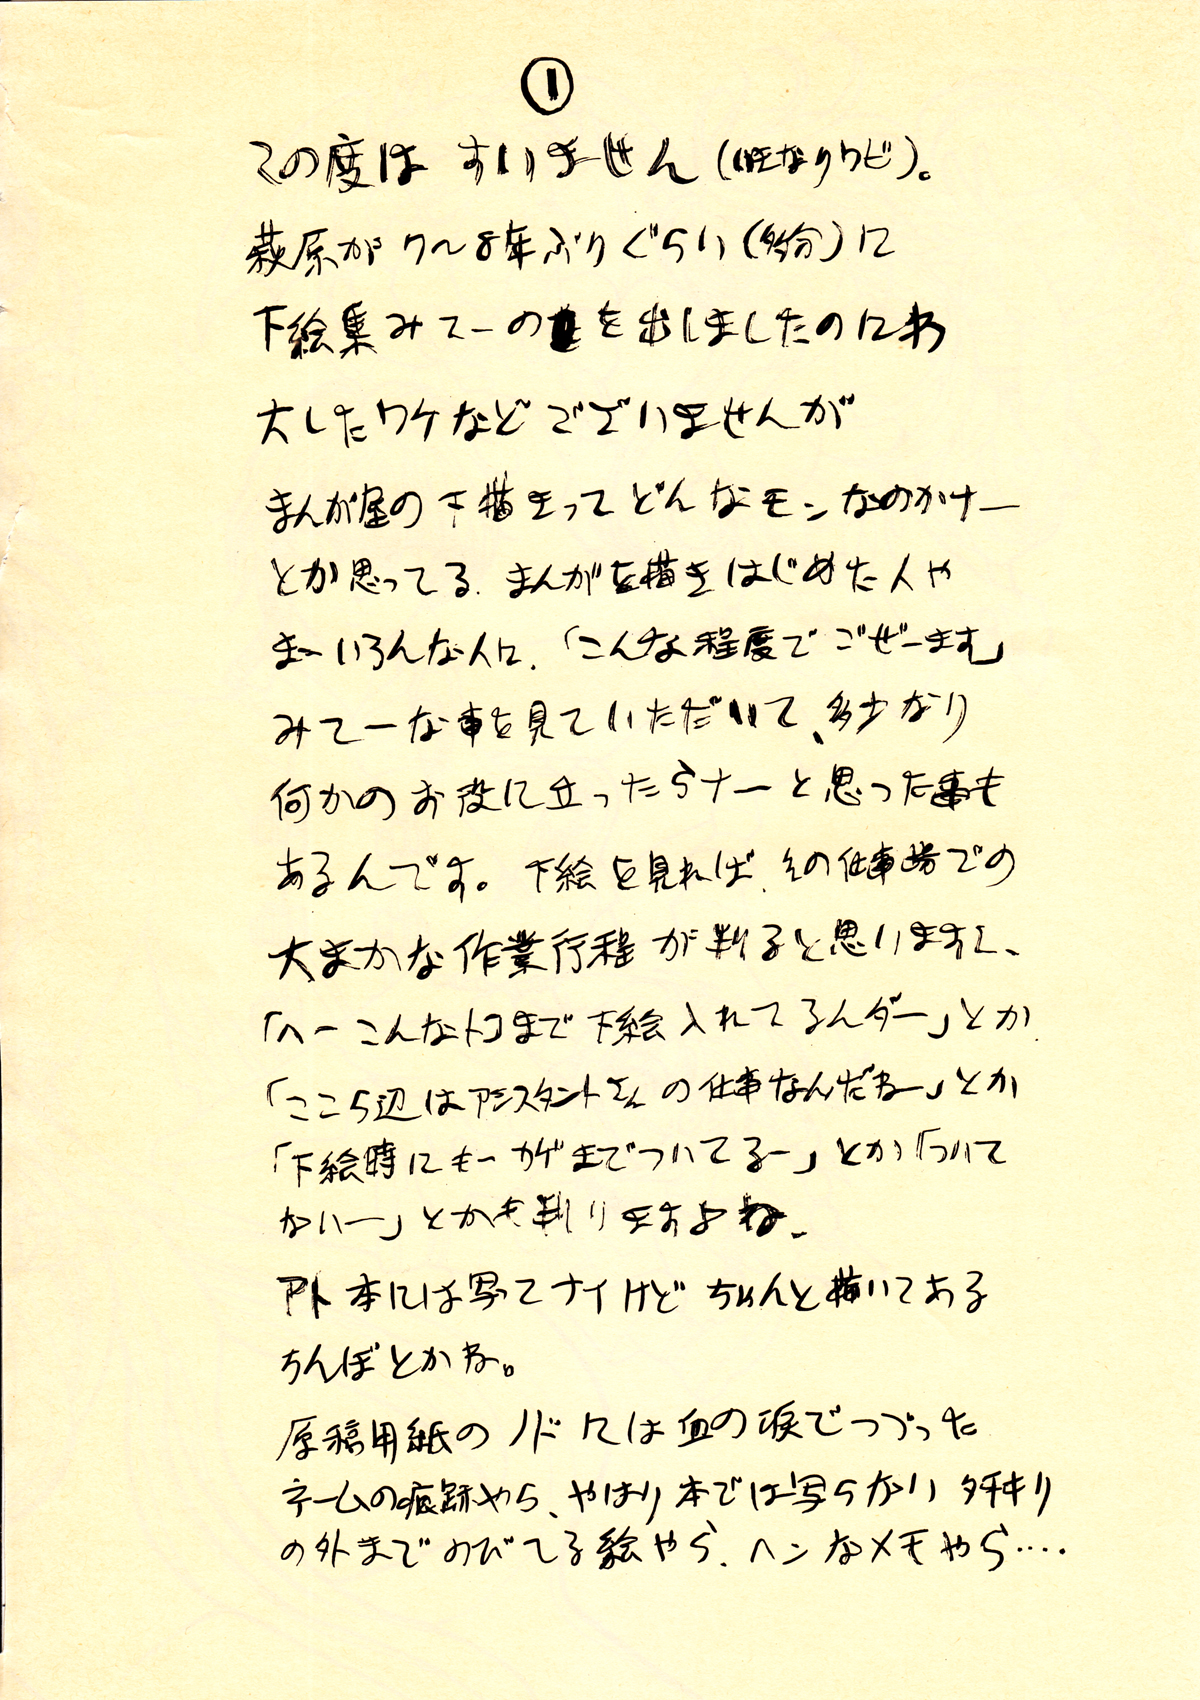 ①
この度は すいません(いきなりワビ)。
萩原が 7〜8年ぶりぐらい(多分)に
下絵集みてーのを出しましたのにわ
大したワケなどございませんが
まんが屋の下描きってどんなモンなのかナー
とか思ってる、まんがを描きはじめた人や
まーいろんな人に、「こんな程度でごぜーます」
みてーな事を見ていただいて、多少なり
何かのお役に立ったらナーと思った事も
あるんです。下絵を見れば、その仕事場での
大まかな作業行程が判ると思いますし、
「へーこんなトコまで下絵入れてるんダー」とか
「ここら辺はアシスタントさんの仕事なんだねー」とか
「下絵時にもーカゲまでついてるー」とか「ついて
ないー」とかも判りますよね、
アト本には写ってナイけどちゃんと描いてある
ちんぽとかね。
原稿用紙のノドには血の涙でつづった
ネームの痕跡やら、やはり本では写らないタチキリ
の外までのびてる絵やら、ヘンなメモやら‥‥